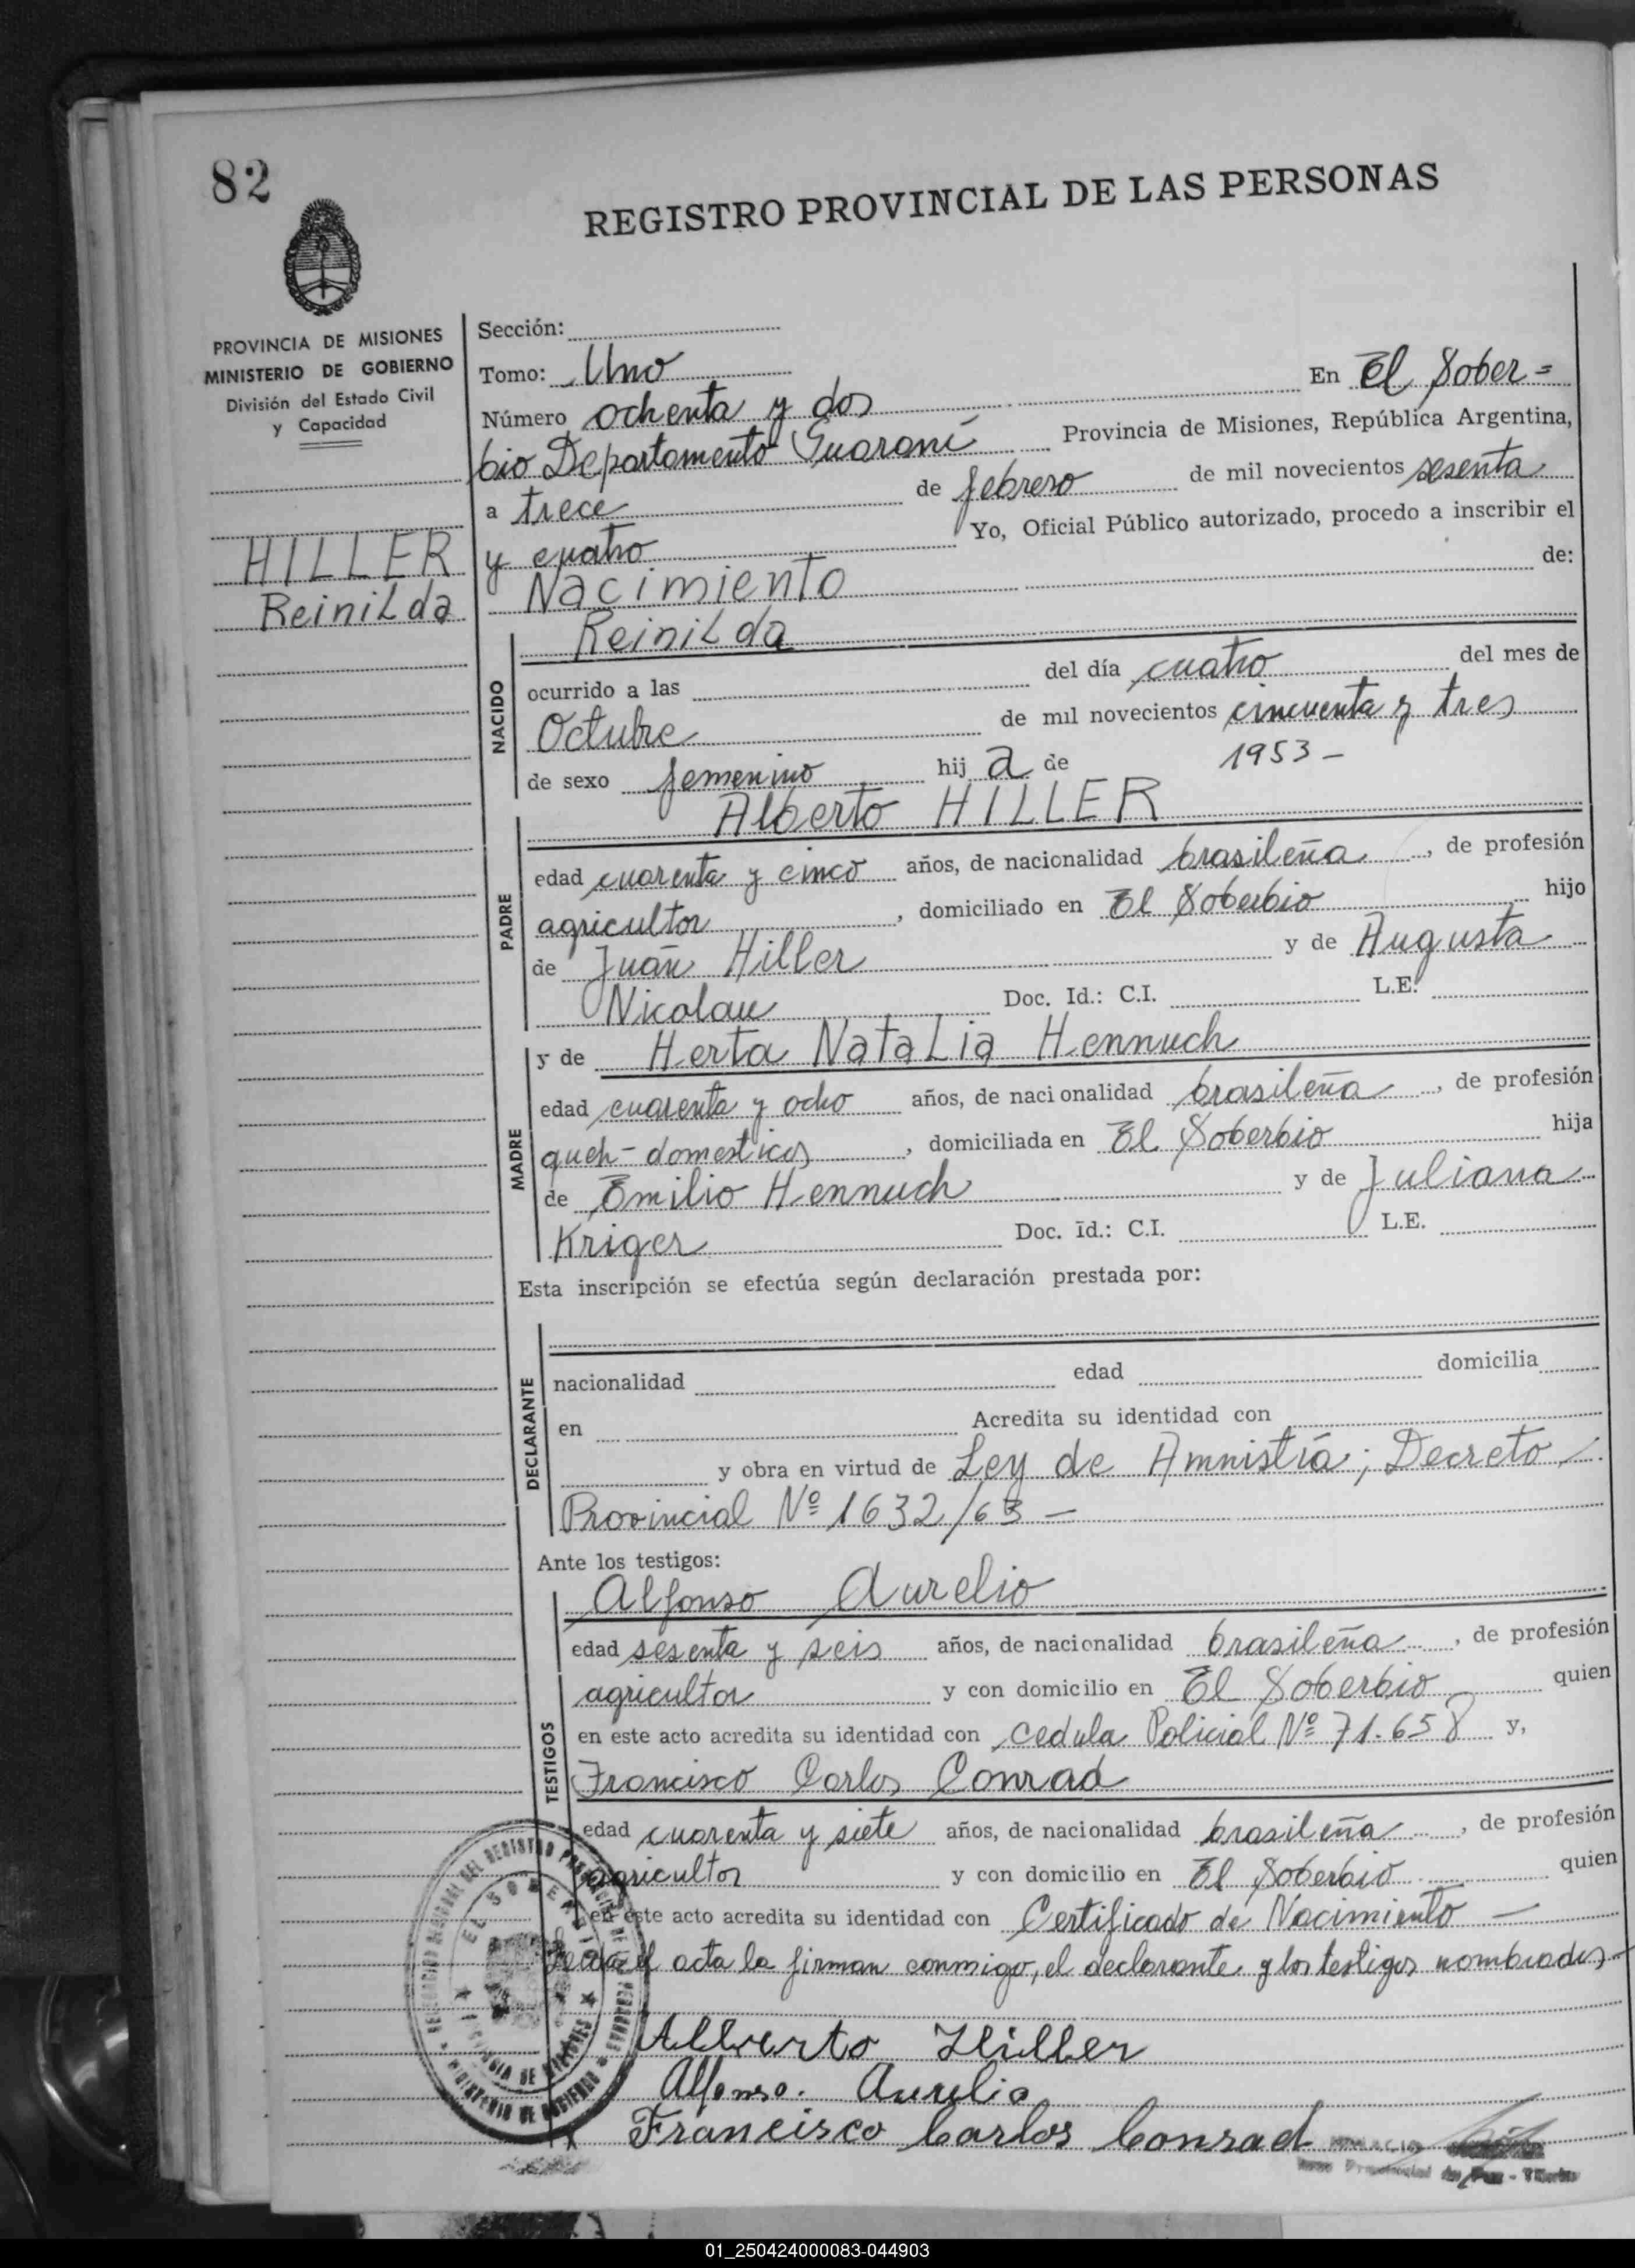 82
REGISTRO PROVINCIAL DE LAS PERSONAS
PROVINCIA DE MISIONES
MINISTERIO DE GOBIERNO
División del Estado Civil
y Capacidad
HILLER
Reinilda
Sección:
Tomo: Uno
Número ochenta y dos En El Sober=
bio Departamento Guaraní Provincia de Misiones, República Argentina,
a trece de febrero de mil novecientos sesenta
y cuatro Yo, Oficial Público autorizado, procedo a inscribir el
Nacimiento de:
Reinilda
NACIDO
ocurrido a las del día cuatro del mes de
Octubre de mil novecientos cincuenta y tres
de sexo femenino hij a de 1953 -
Alberto HILLER
PADRE
edad cuarenta y cinco años, de nacionalidad brasileña, de profesión
agricultor, domiciliado en El Soberbio hijo
de Juan Hiller y de Augusta
Nicolau Doc. Id.: C.I. L.E.
y de Herta Natalia Hennuch
MADRE
edad cuarenta y ocho años, de nacionalidad brasileña, de profesión
queh-domesticos, domiciliada en El Soberbio hija
de Emilio Hennuch y de Juliana
Kriger Doc. Id.: C.I. L.E.
Esta inscripción se efectúa según declaración prestada por:
DECLARANTE
nacionalidad edad domicilia
en Acredita su identidad con
y obra en virtud de Ley de Amnistía; Decreto
Provincial Nº 1632/63 -
Ante los testigos:
Alfonso Aurelio
TESTIGOS
edad sesenta y seis años, de nacionalidad brasileña, de profesión
agricultor y con domicilio en El Soberbio quien
en este acto acredita su identidad con cedula Policial Nº 71.658 y,
Francisco Carlos Conrad
edad cuarenta y siete años, de nacionalidad brasileña, de profesión
agricultor y con domicilio en El Soberbio quien
en este acto acredita su identidad con Certificado de Nacimiento -
acta la firman conmigo, el declarante y los testigos nombrados -
Alberto Hiller
Alfonso. Aurelio
Francisco Carlos Conrad
EL SOBERBIO
MINISTERIO DE GOBIERNO
01_250424000083-044903